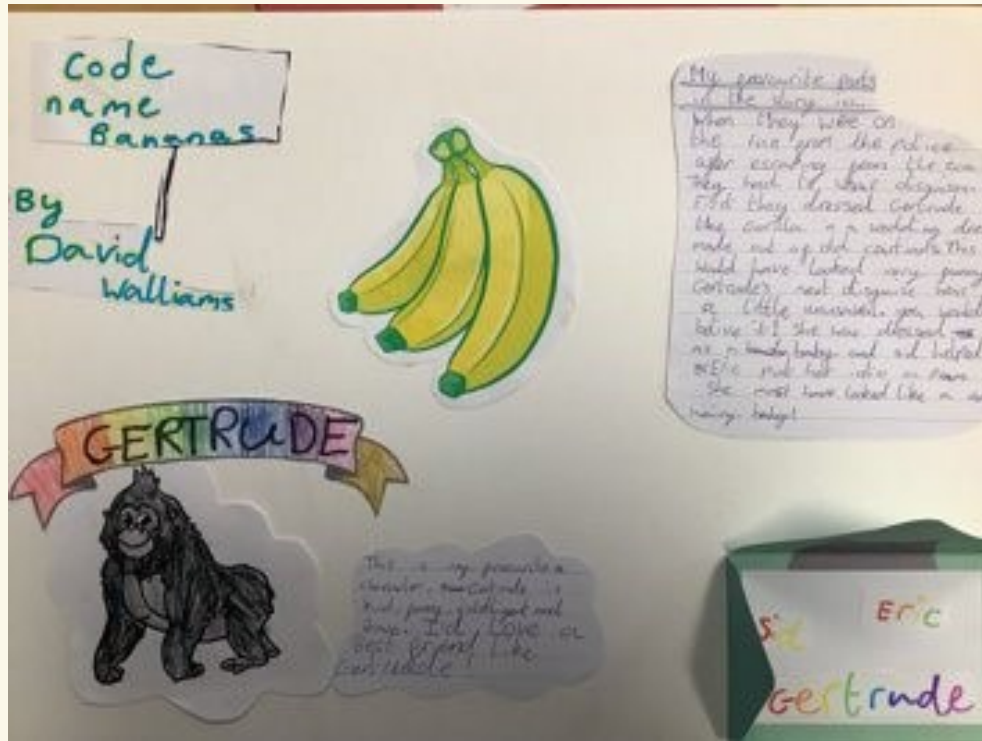 Code
name
Bananas
By
David
Walliams
My favourite parts
in the story is...
When they were on
the run from the police
after escaping from the zoo
They had to wear disguises
First they dressed Gertrude
the Gorilla in a wedding dre
made out of old curtains. This
would have looked very funny
Gertrude's next disguise were
a little unusual, you would
belive it! She was dressed
as a baby and sid helped
Eric
She must have looked like a
hairy baby!
GERTRUDE
This is my favourite
character. Gertrude is
kind, funny,
I'd LOVE a
best friend like
Gertrude
Sid
Eric
Gertrude